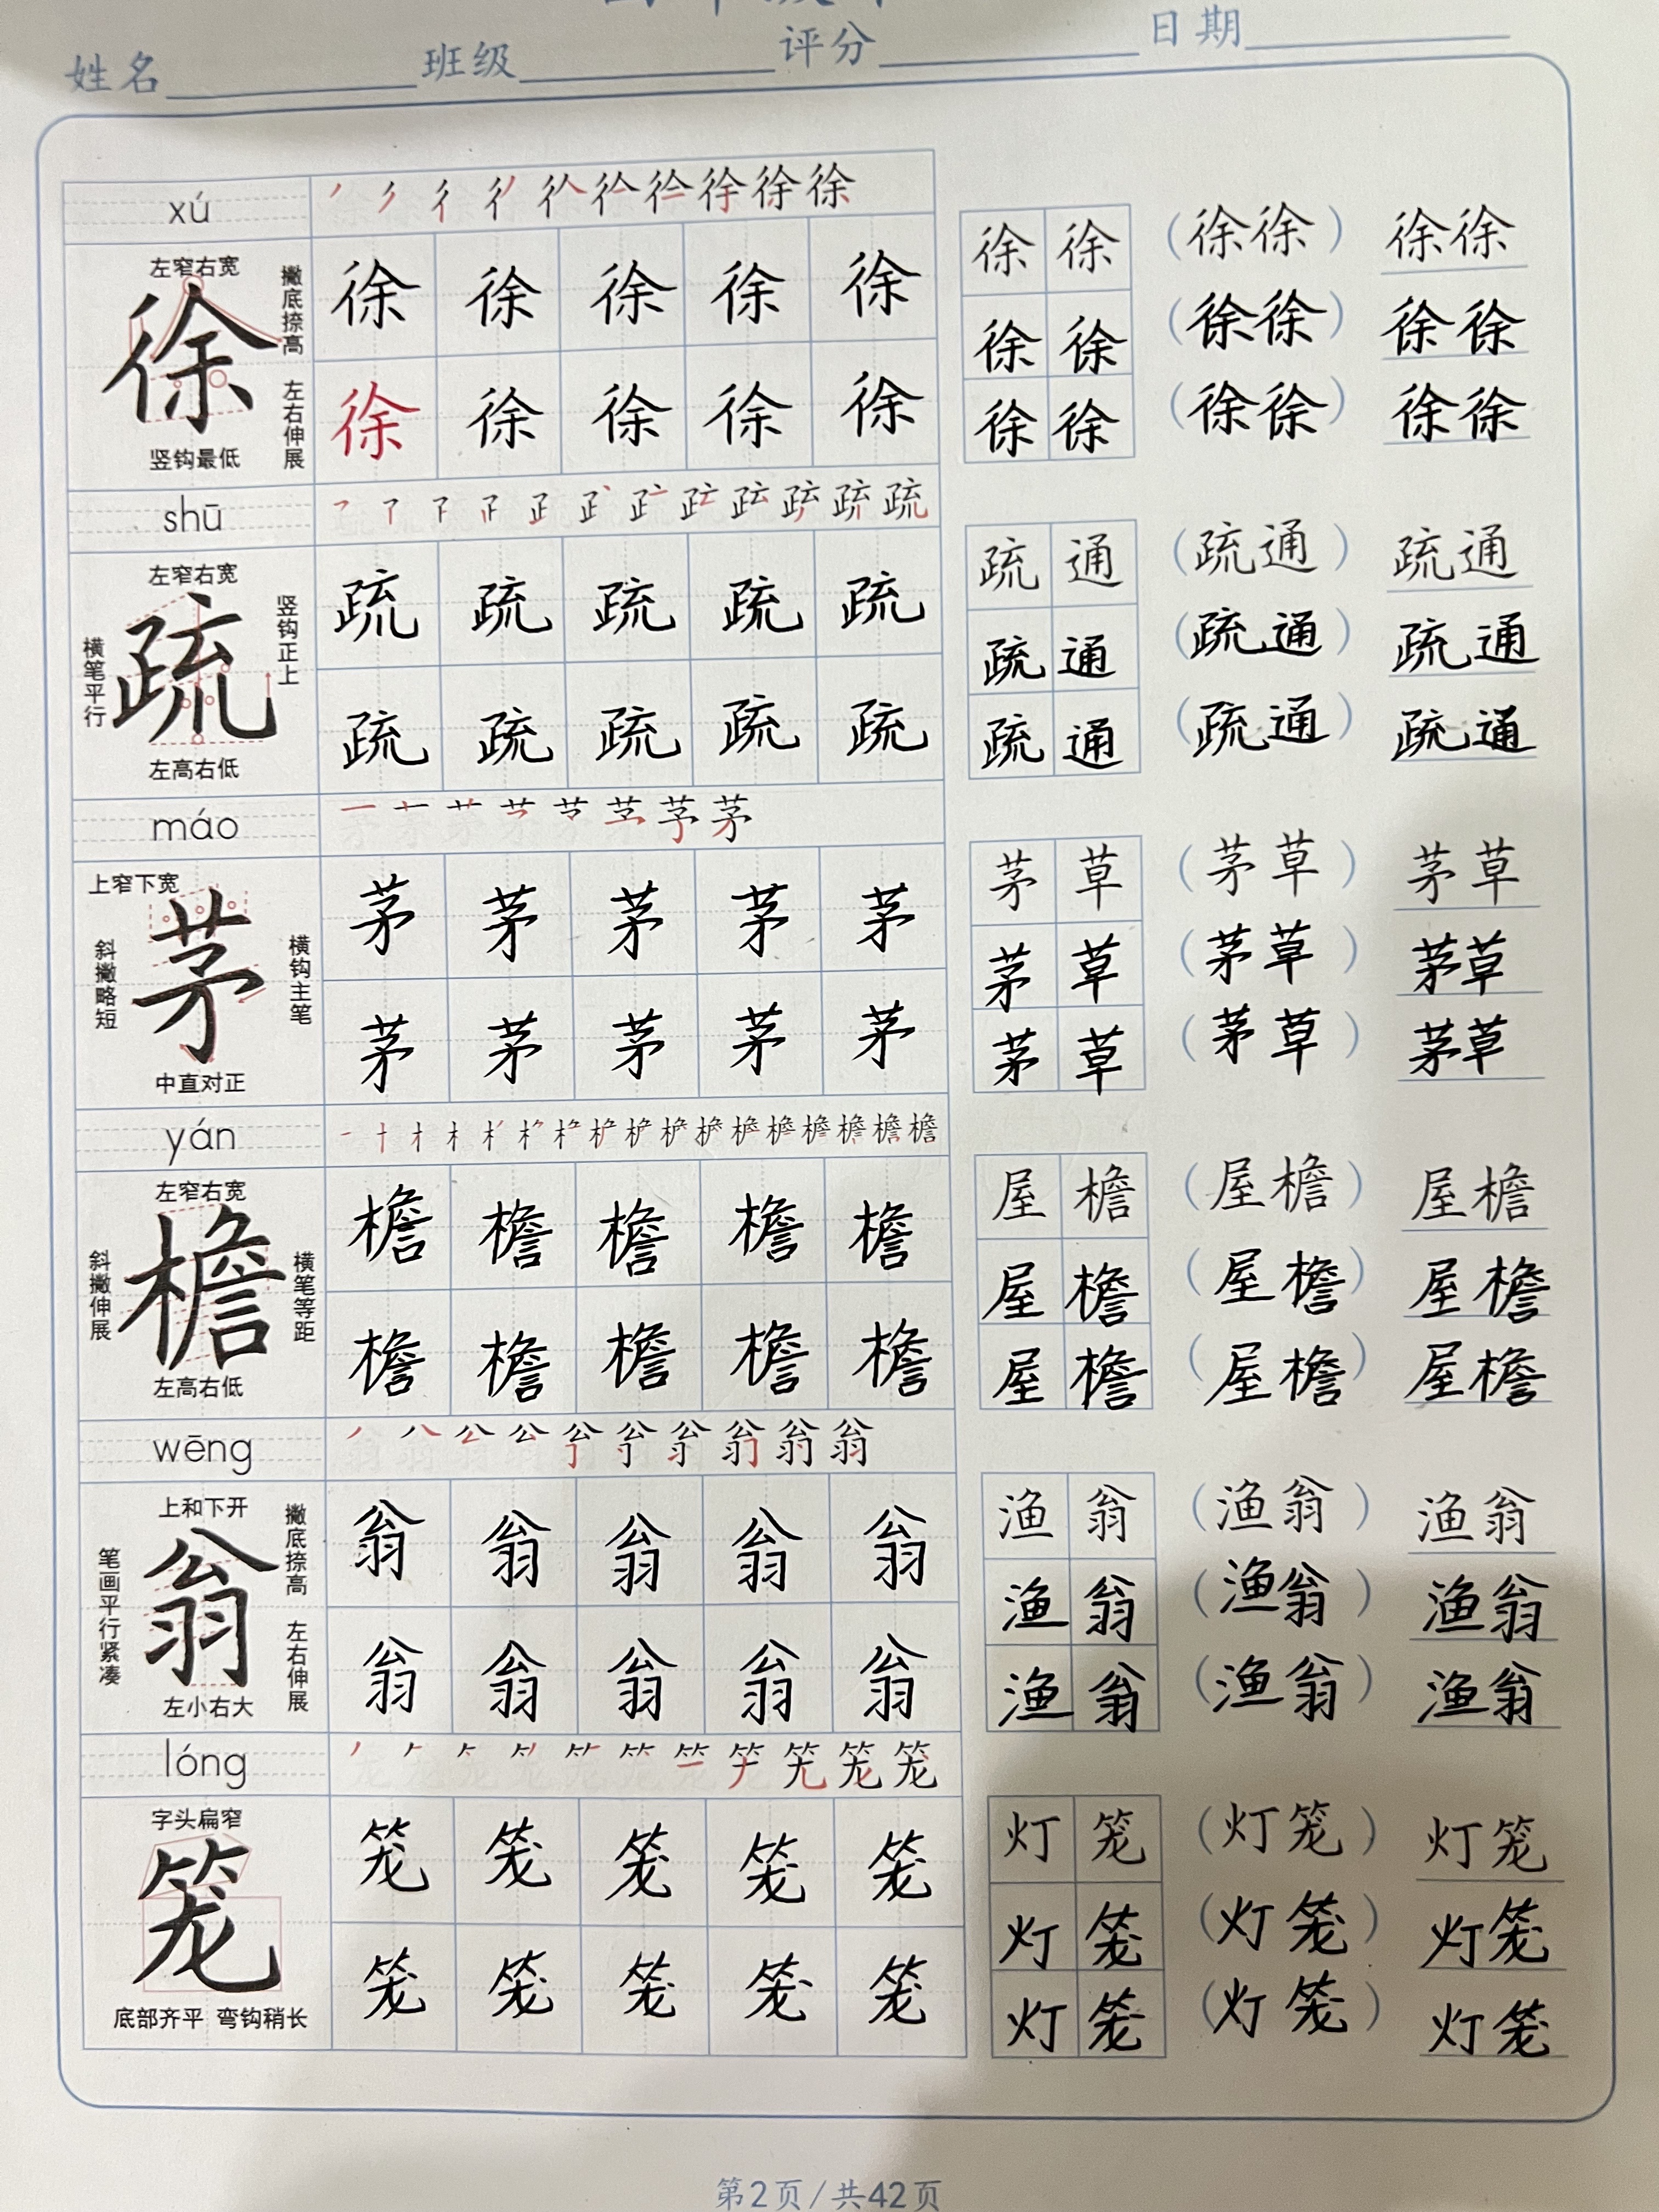 姓名 班级 评分 日期
xú
徐
左窄右宽
撇底捺高
左右伸展
徐
竖钩最低
徐 徐 徐 徐 徐
徐 徐 徐 徐 徐
徐徐 (徐徐) 徐徐
徐徐 (徐徐) 徐徐
徐徐 (徐徐) 徐徐
shū
疏
左窄右宽
竖钩正上
横笔平行
疏
左高右低
疏 疏 疏 疏 疏
疏 疏 疏 疏 疏
疏通 (疏通) 疏通
疏通 (疏通) 疏通
疏通 (疏通) 疏通
máo
茅
上窄下宽
斜撇略短
横钩主笔
茅
中直对正
茅 茅 茅 茅 茅
茅 茅 茅 茅 茅
茅草 (茅草) 茅草
茅草 (茅草) 茅草
茅草 (茅草) 茅草
yán
檐
左窄右宽
斜撇伸展
横笔等距
檐
左高右低
檐 檐 檐 檐 檐
檐 檐 檐 檐 檐
屋檐 (屋檐) 屋檐
屋檐 (屋檐) 屋檐
屋檐 (屋檐) 屋檐
wēng
翁
上和下开
撇底捺高
左右伸展
笔画平行紧凑
翁
左小右大
翁 翁 翁 翁 翁
翁 翁 翁 翁 翁
渔翁 (渔翁) 渔翁
渔翁 (渔翁) 渔翁
渔翁 (渔翁) 渔翁
lóng
笼
字头扁窄
笼
底部齐平 弯钩稍长
笼 笼 笼 笼 笼
笼 笼 笼 笼 笼
灯笼 (灯笼) 灯笼
灯笼 (灯笼) 灯笼
灯笼 (灯笼) 灯笼
第2页/共42页